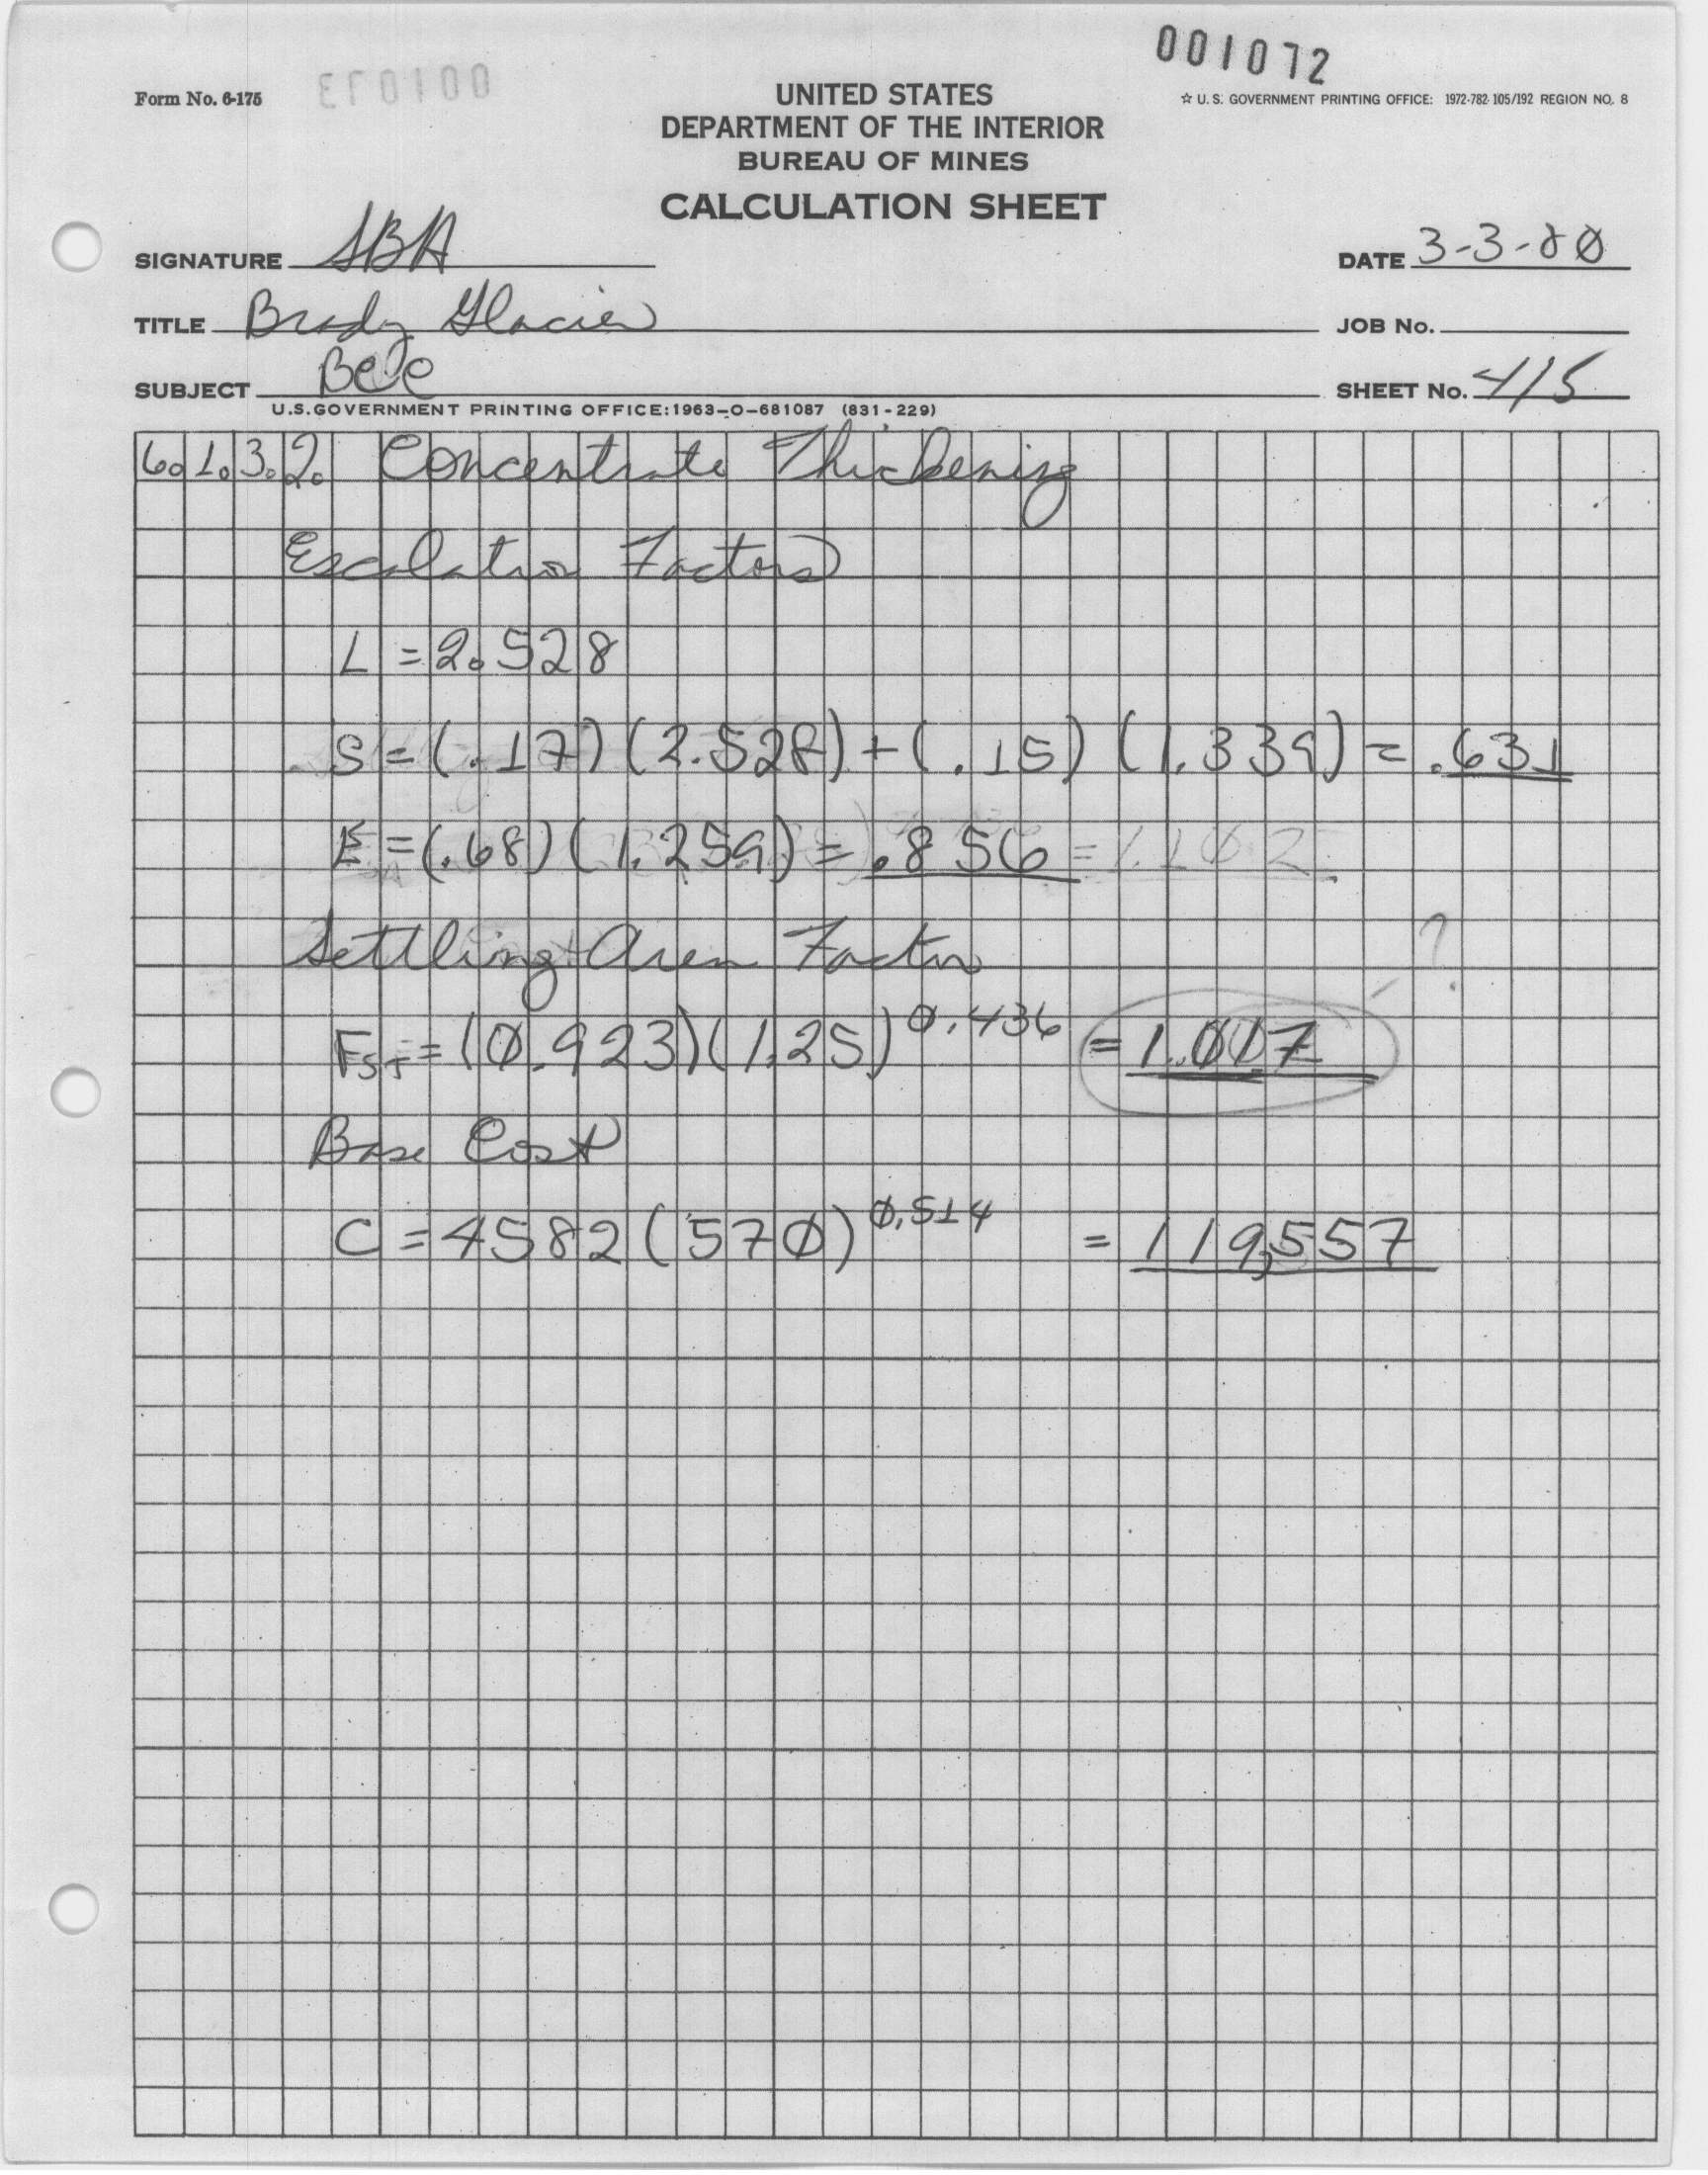 001072
Form No. 6-175
UNITED STATES
☆ U. S. GOVERNMENT PRINTING OFFICE: 1972-782-105/192 REGION NO. 8
DEPARTMENT OF THE INTERIOR
BUREAU OF MINES
CALCULATION SHEET
SIGNATURE SBA
DATE 3-3-80
TITLE Brady Glacier
JOB No.
SUBJECT
SHEET No. 4/5
U.S.GOVERNMENT PRINTING OFFICE:1963-O-681087 (831-229)
6.1.3.2. Concentrate Thickening
Escalation Factors
L = 2.528
S = (.17) (2.528) + (.15) (1.339) = .631
E = (.68) (1.259) = .856 = 1.102
Settling Area Factor
?
F = (0.923)(1.25)^0.436 = 1.017
Base Cost
C = 4582 (570)^0.514 = 119,557